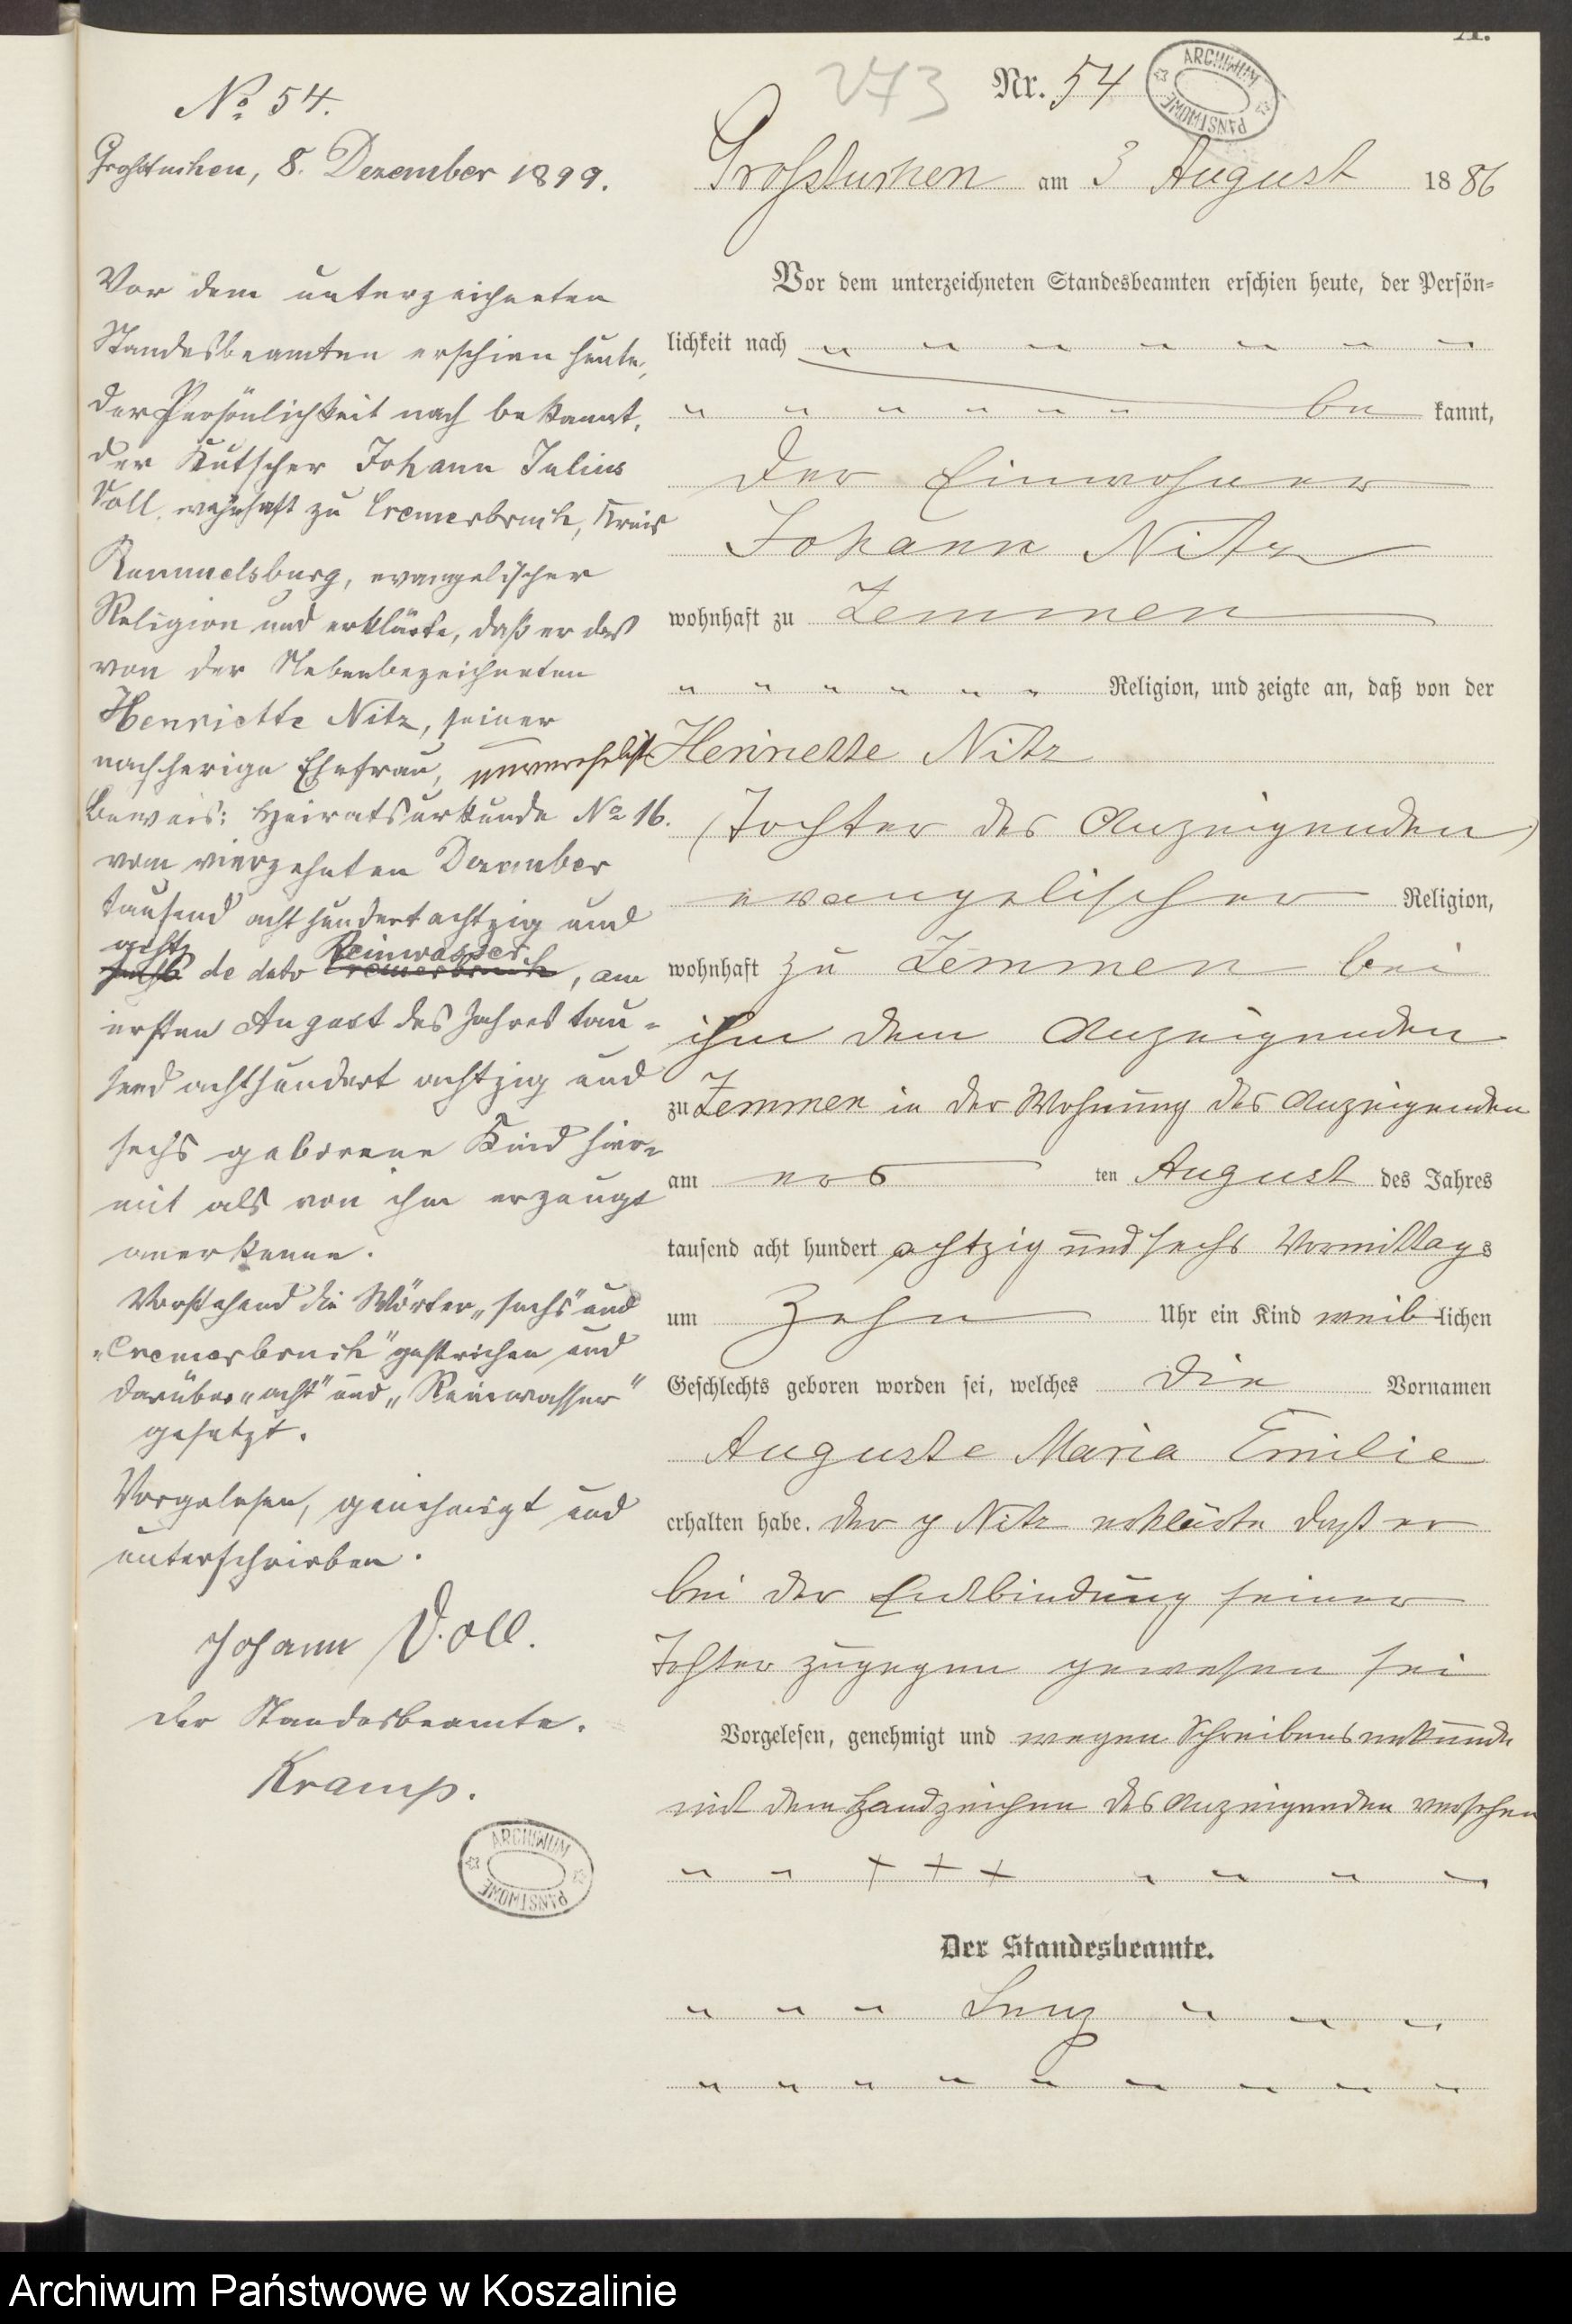 A.
273
Nr. 54
ARCHIWUM
PAŃSTWOWE
Großtuchen am 3 August 1886
Vor dem unterzeichneten Standesbeamten erschien heute, der Persön-
lichkeit nach
be kannt,
der Einwohner
Johann Nitz
wohnhaft zu Zemmen
Religion, und zeigte an, daß von der
unverehelicht Henriette Nitz
(Tochter des Anzeigenden)
evangelischer Religion,
wohnhaft zu Zemmen bei
ihm dem Anzeigenden
zu Zemmen in der Wohnung des Anzeigenden
am ers ten August des Jahres
tausend acht hundert achtzig und sechs Vormittags
um zehn Uhr ein Kind weiblichen
Geschlechts geboren worden sei, welches die Vornamen
Auguste Maria Emilie
erhalten habe. Der p Nitz erklärte daß er
bei der Entbindung seiner
Tochter zugegen gewesen sei
Vorgelesen, genehmigt und wegen Schreibensunkunde
mit dem Handzeichen des Anzeigenden versehen
+ + +
Der Standesbeamte.
No 54.
Großtuchen, 8. Dezember 1899.
Vor dem unterzeichneten
Standesbeamten erschien heute,
der Persönlichkeit nach bekannt,
der Kutscher Johann Julius
Voll, wohnhaft zu Cremerbruch, Kreis
Rummelsburg, evangelischer
Religion und erklärte, daß er das
von der Nebenbezeichneten
Henriette Nitz, seiner
nachherige Ehefrau,
Beweis: Heiratsurkunde No 16.
vom vierzehnten Dezember
tausend acht hundert achtzig und
acht Reinwasser
sechs de dato Cremerbruch, am
ersten August des Jahres tau-
send achthundert achtzig und
sechs geborene Kind hier-
mit als von ihm erzeugt
anerkenne.
Vorstehend die Wörter „sechs" und
„Cremerbruch" gestrichen und
darüber „acht" und „Reinwasser"
gesetzt.
Vorgelesen, genehmigt und
unterschrieben.
Johann Voll.
Der Standesbeamte.
Kramp.
ARCHIWUM
PAŃSTWOWE
Archiwum Państwowe w Koszalinie